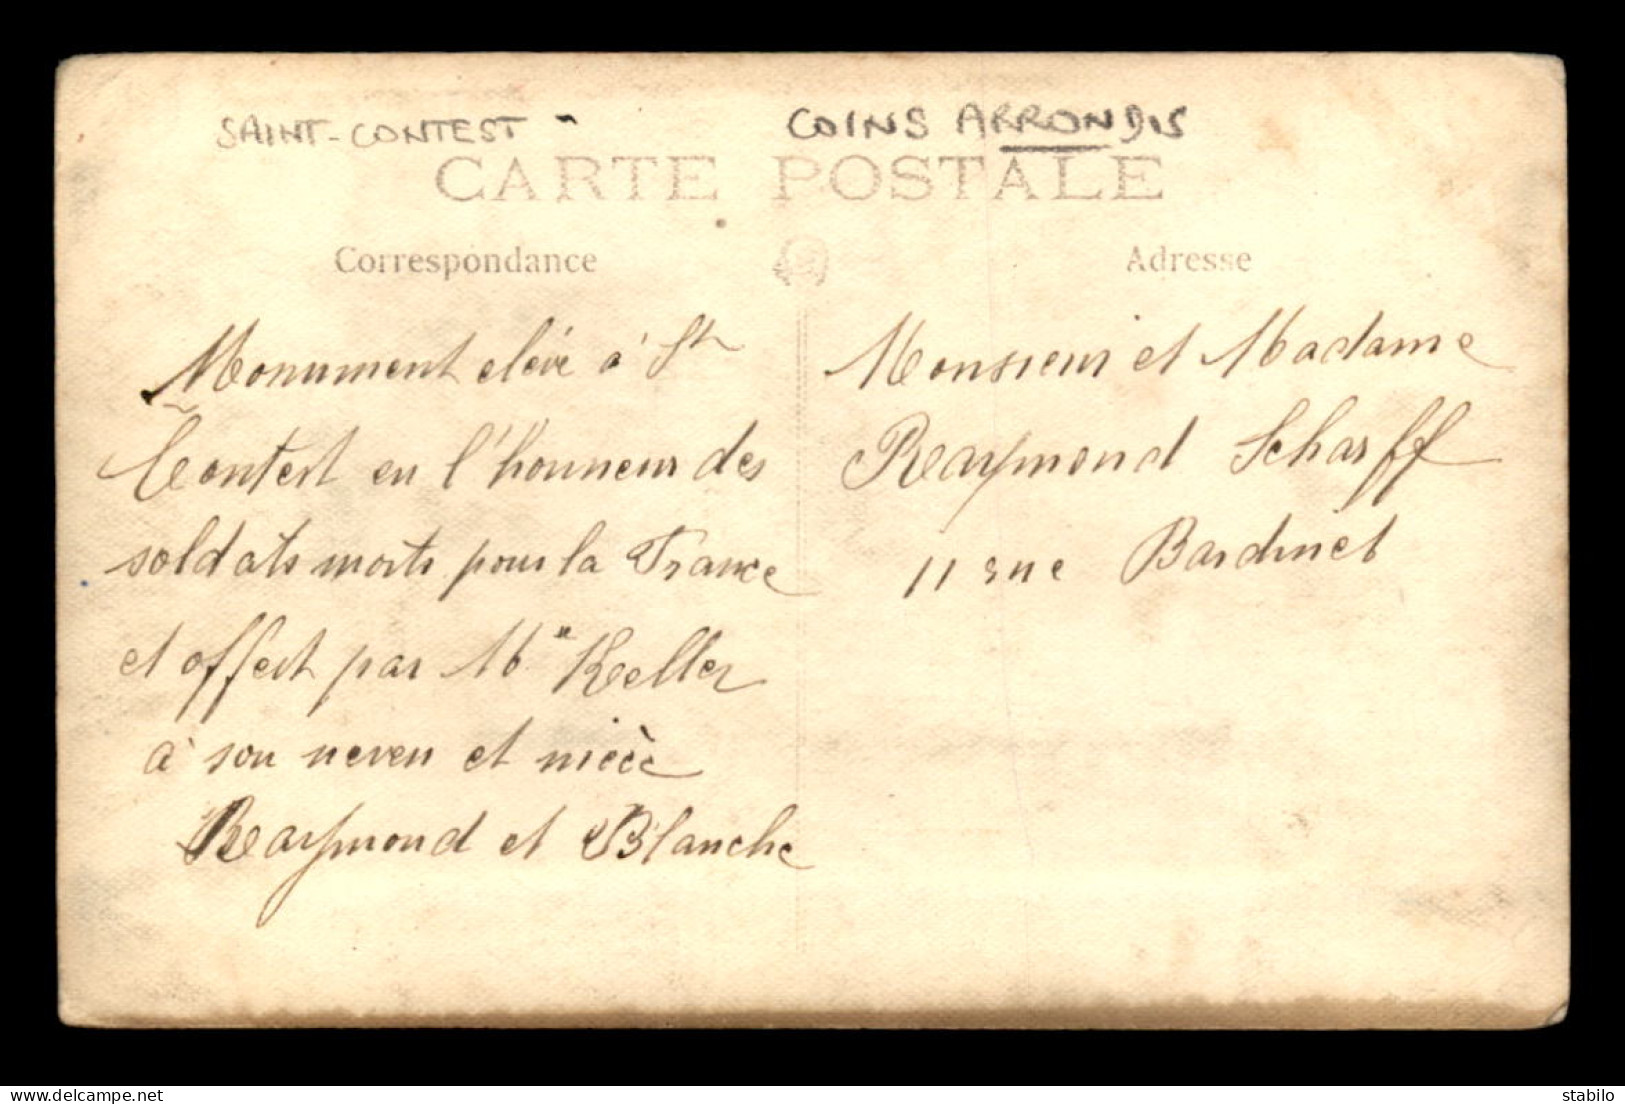 SAINT-CONTEST
COINS ARRONDIS
CARTE POSTALE
Correspondance
Adresse
Monument eléve à St
Contest en l'honneur des
soldats morts pour la France
et offert par Mr Keller
à son neveu et nièce
Raymond et Blanche
Monsieur et Madame
Raymond Scharff
11 rue Bardinet
delcampe.net
stabilo